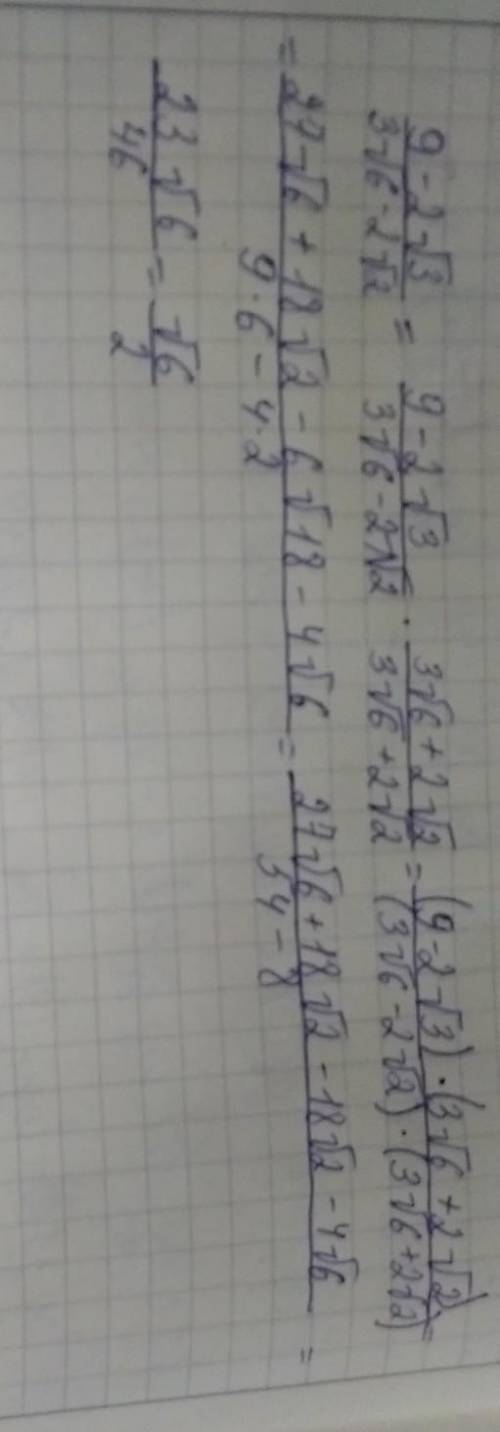 (9 - 2√3)/(3√6 - 2√2) = (9 - 2√3)/(3√6 - 2√2) · (3√6 + 2√2)/(3√6 + 2√2) = ((9 - 2√3) · (3√6 + 2√2))/((3√6 - 2√2) · (3√6 + 2√2)) =
= (27√6 + 18√2 - 6√18 - 4√6)/(9·6 - 4·2) = (27√6 + 18√2 - 18√2 - 4√6)/(54 - 8) =
(23√6)/46 = √6/2